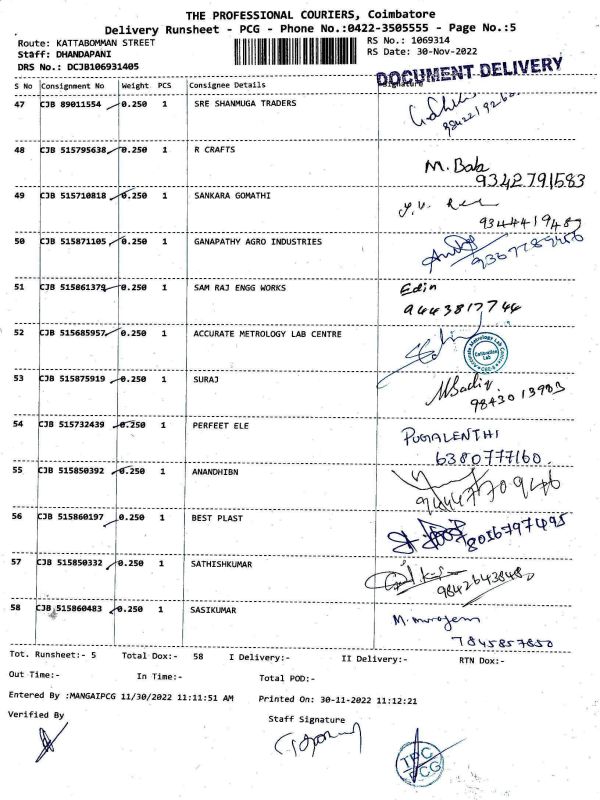 THE PROFESSIONAL COURIERS, Coimbatore
Delivery Runsheet - PCG - Phone No.:0422-3505555 - Page No.:5
Route: KATTABOMMAN STREET RS No.: 1069314
Staff: DHANDAPANI RS Date: 30-Nov-2022
DRS No.: DCJB106931405
DOCUMENT DELIVERY
S No Consignment No Weight PCS Consignee Details Signature
47 CJB 89011554 0.250 1 SRE SHANMUGA TRADERS
48 CJB 515795638 0.250 1 R CRAFTS
M. Bab
9342791583
49 CJB 515710818 0.250 1 SANKARA GOMATHI
50 CJB 515871105 0.250 1 GANAPATHY AGRO INDUSTRIES
51 CJB 515861379 0.250 1 SAM RAJ ENGG WORKS Edin
9443817744
52 CJB 515685957 0.250 1 ACCURATE METROLOGY LAB CENTRE
Accurate Metrology Lab
Calibration
Lab
53 CJB 515875919 0.250 1 SURAJ
9843013983
54 CJB 515732439 0.250 1 PERFEET ELE
PUGALENTHI
6380777160
55 CJB 515850392 0.250 1 ANANDHIBN
56 CJB 515860197 0.250 1 BEST PLAST
57 CJB 515850332 0.250 1 SATHISHKUMAR
58 CJB 515860483 0.250 1 SASIKUMAR
7845857850
Tot. Runsheet:- 5 Total Dox:- 58 I Delivery:- II Delivery:- RTN Dox:-
Out Time:- In Time:- Total POD:-
Entered By :MANGAIPCG 11/30/2022 11:11:51 AM Printed On: 30-11-2022 11:12:21
Verified By Staff Signature
TPC
PCG